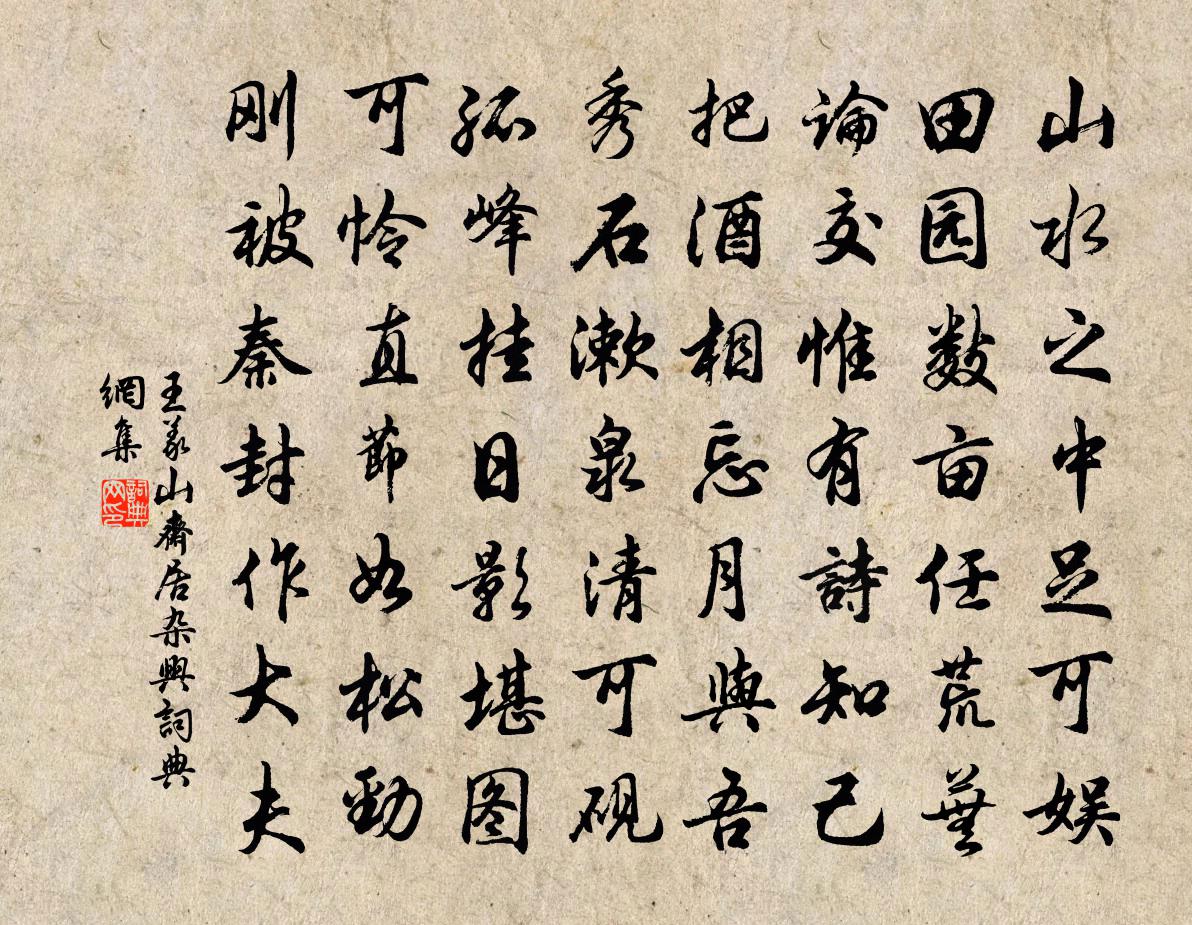 山水之中足可娱
田园数亩任荒蕪
論交惟有詩知己
把酒相忘月與吾
秀石漱泉清可砚
孤峰挂日影堪图
可怜直節如松勁
刚被秦封作大夫
王義山齋居杂興詞典
網集
詞典
网印